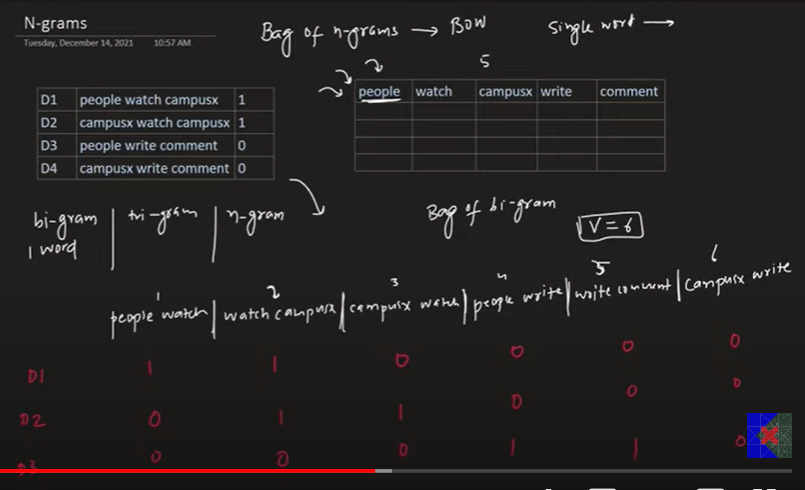 N-grams
Tuesday, December 14, 2021 10:57 AM
Bag of n-grams → BOW
Single word →
5
D1 people watch campusx 1
D2 campusx watch campusx 1
D3 people write comment 0
D4 campusx write comment 0
people watch campusx write comment
bi-gram | tri-gram | n-gram
1 word
Bag of bi-gram
V = 6
1 2 3 4 5 6
people watch | watch campusx | campusx watch | people write | write comment | campusx write
D1 1 1 0 0 0 0
D2 0 1 1 0 0 0
D3 0 0 0 1 1 0